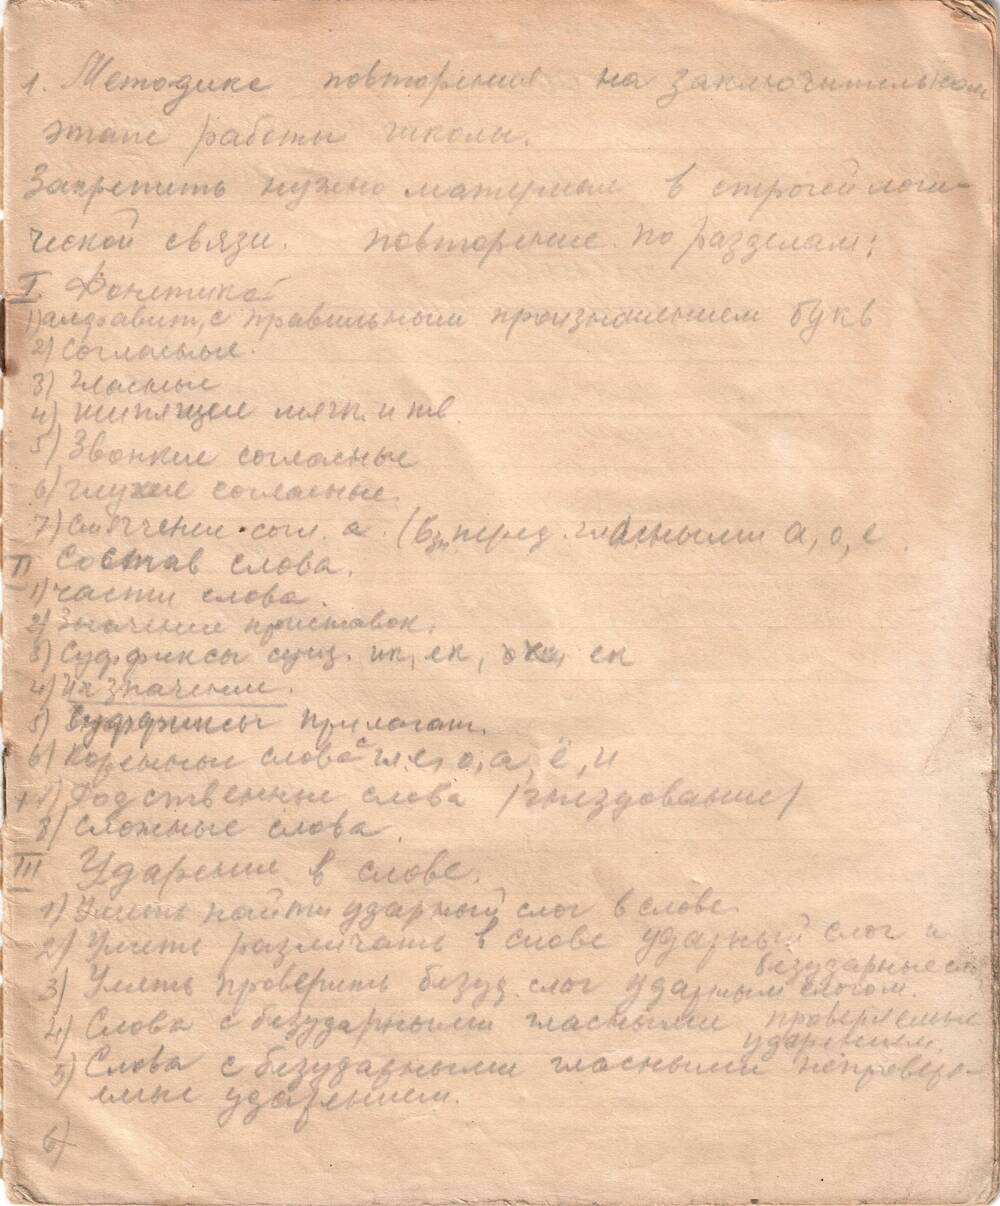 1. Методика повторения на заключительном
этапе работы школы.
Закрепить нужно материал в строгой логи-
ческой связи. Повторение по разделам:
I. Фонетика
1) алфавит, с правильным произношением букв
2) Согласные.
3) Гласные
4) шипящие мягк. и тв.
5) Звонкие согласные
6) глухие согласные.
7) Смягчение согл. перед гласными а, о, е.
II Состав слова.
1) части слова.
2) Значение приставок.
3) Суффиксы сущ. ик, ек, ек
4) Их значение.
5) Суффиксы прилагат.
6) Коренные слова с гл. е, о, а, ё, и
7) Родственные слова (гнездование)
8) Сложные слова.
III Ударение в слове.
1) Уметь найти ударный слог в слове.
2) Уметь различать в слове ударный слог и
безударные сл
3) Уметь проверить безуд. слог ударным слогом.
4) Слова с безударными гласными проверяемые
ударением.
5) Слова с безударными гласными непроверя-
емые ударением.
6)